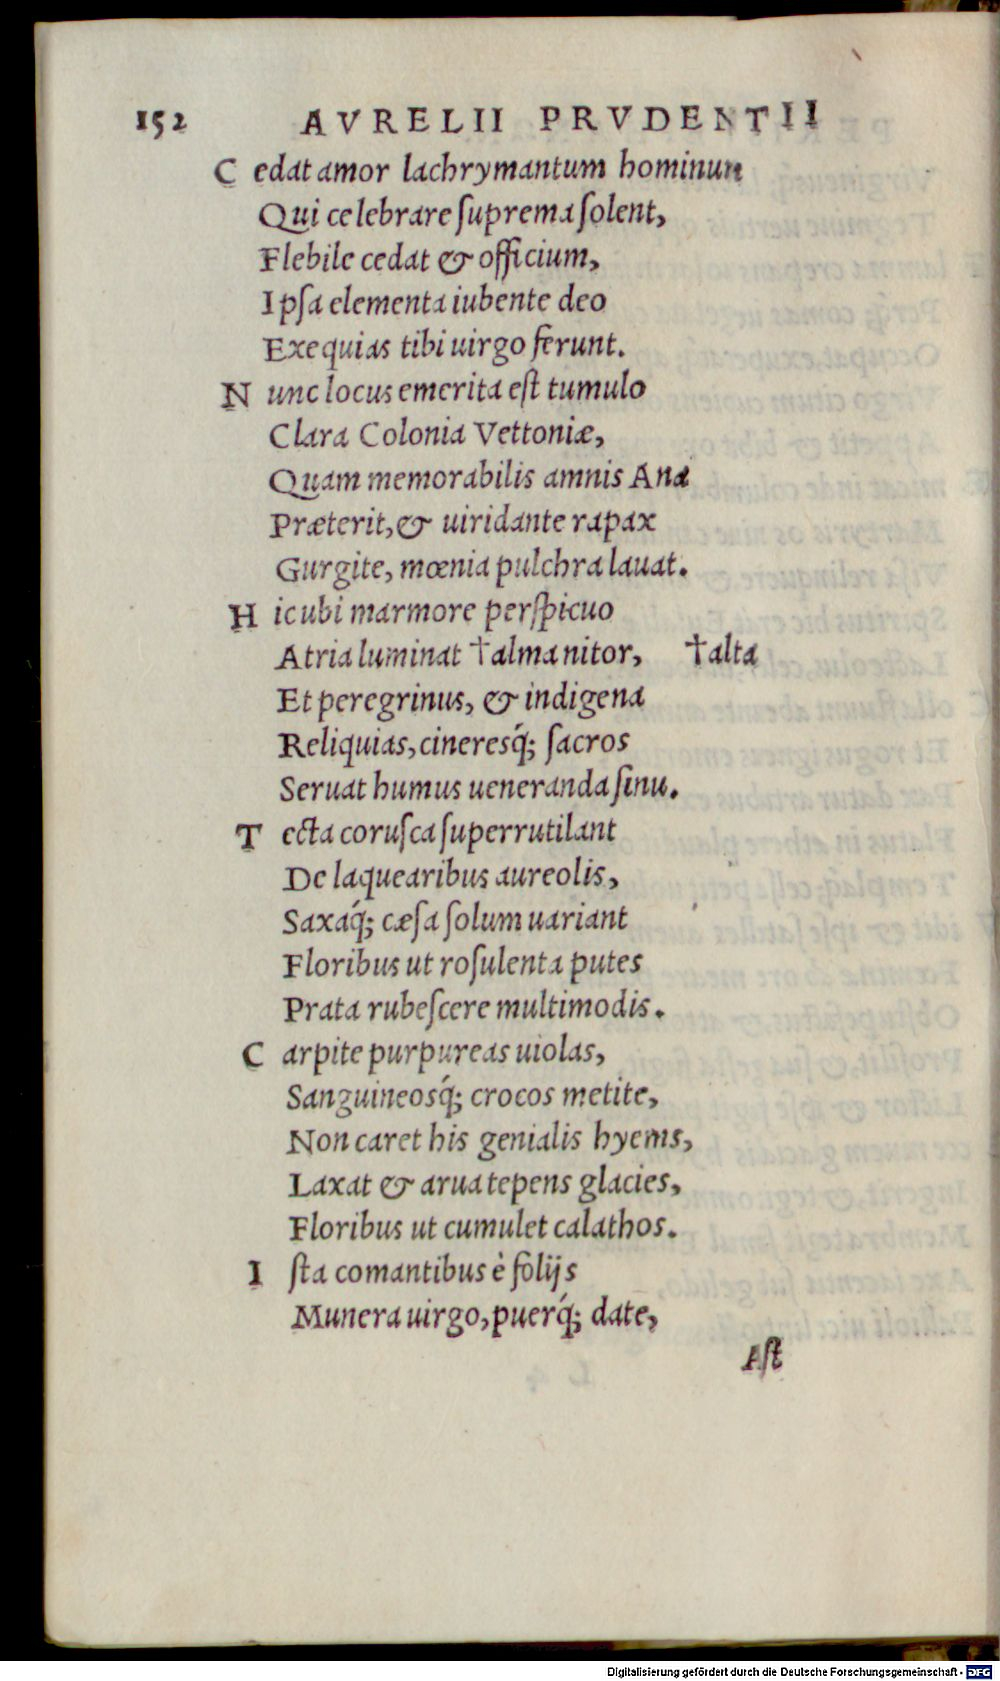 152 AVRELII PRVDENTII
C edat amor lachrymantum hominum
Qui celebrare suprema solent,
Flebile cedat & officium,
Ipsa elementa iubente deo
Exequias tibi uirgo ferunt.
N unc locus emerita est tumulo
Clara Colonia Vettoniæ,
Quam memorabilis amnis Ana
Præterit, & uiridante rapax
Gurgite, mœnia pulchra lauat.
H ic ubi marmore perspicuo
Atria luminat †alma nitor, †alta
Et peregrinus, & indigena
Reliquias, cineresq́; sacros
Seruat humus ueneranda sinu.
T ecta corusca super rutilant
De laquearibus aureolis,
Saxaq́; cæsa solum uariant
Floribus ut rosulenta putes
Prata rubescere multimodis.
C arpite purpureas uiolas,
Sanguineosq́; crocos metite,
Non caret his genialis hyems,
Laxat & arua tepens glacies,
Floribus ut cumulet calathos.
I sta comantibus è folijs
Munera uirgo, puerq́; date,
Ast
Digitalisierung gefördert durch die Deutsche Forschungsgemeinschaft - DFG